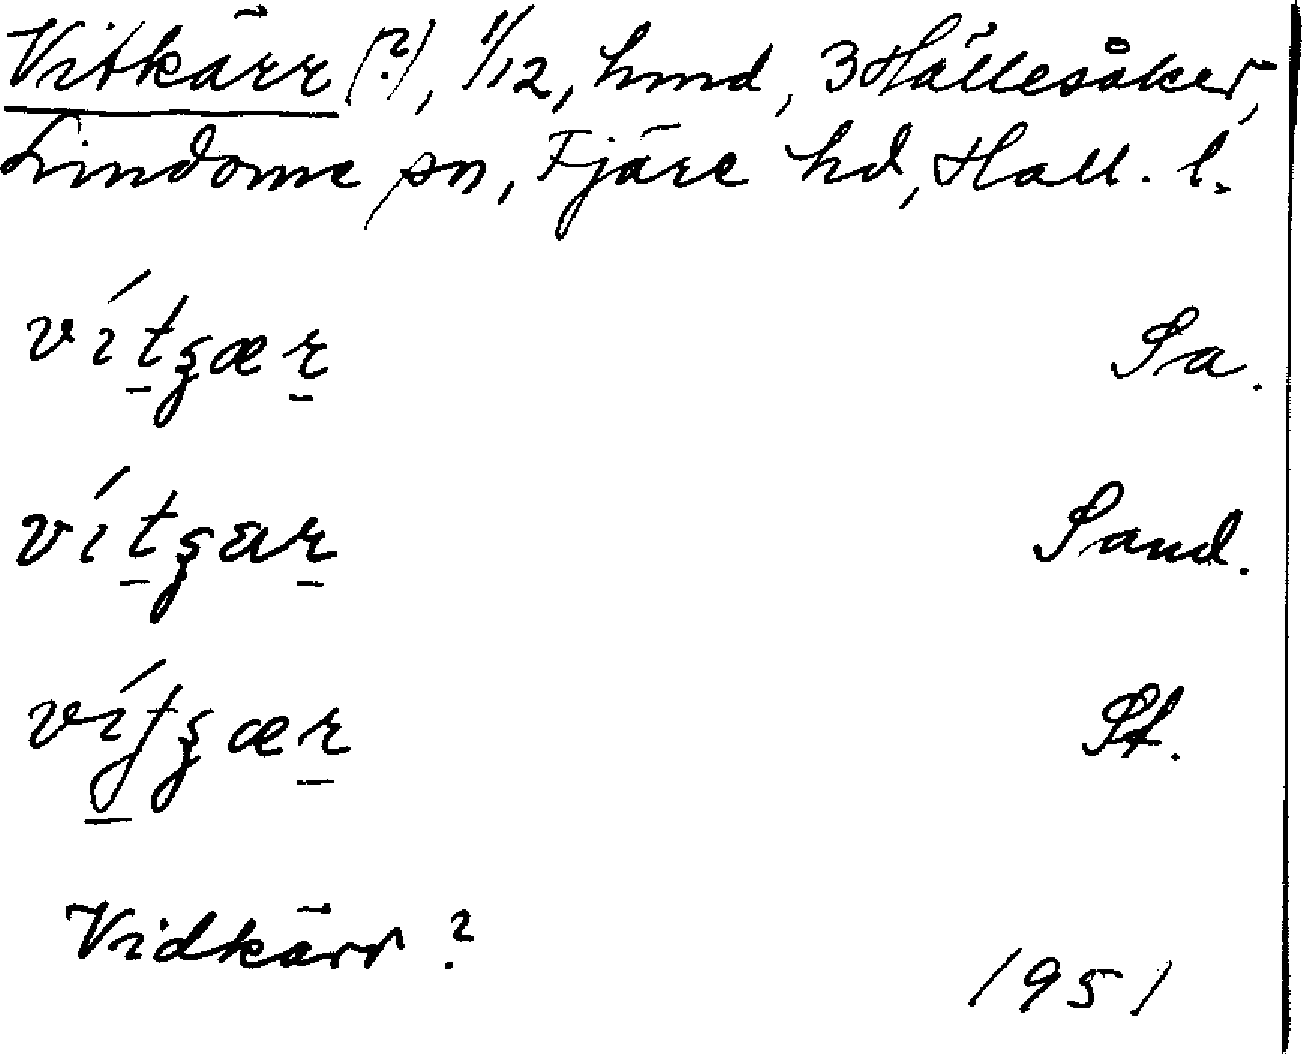 Vitkärr (?), 1/12, hmd, 3 Hällesåker,
Lindome sn, Fjäre hd, Hall. l.
Sa.
Sand.
St.
Vidkärr ?
1951